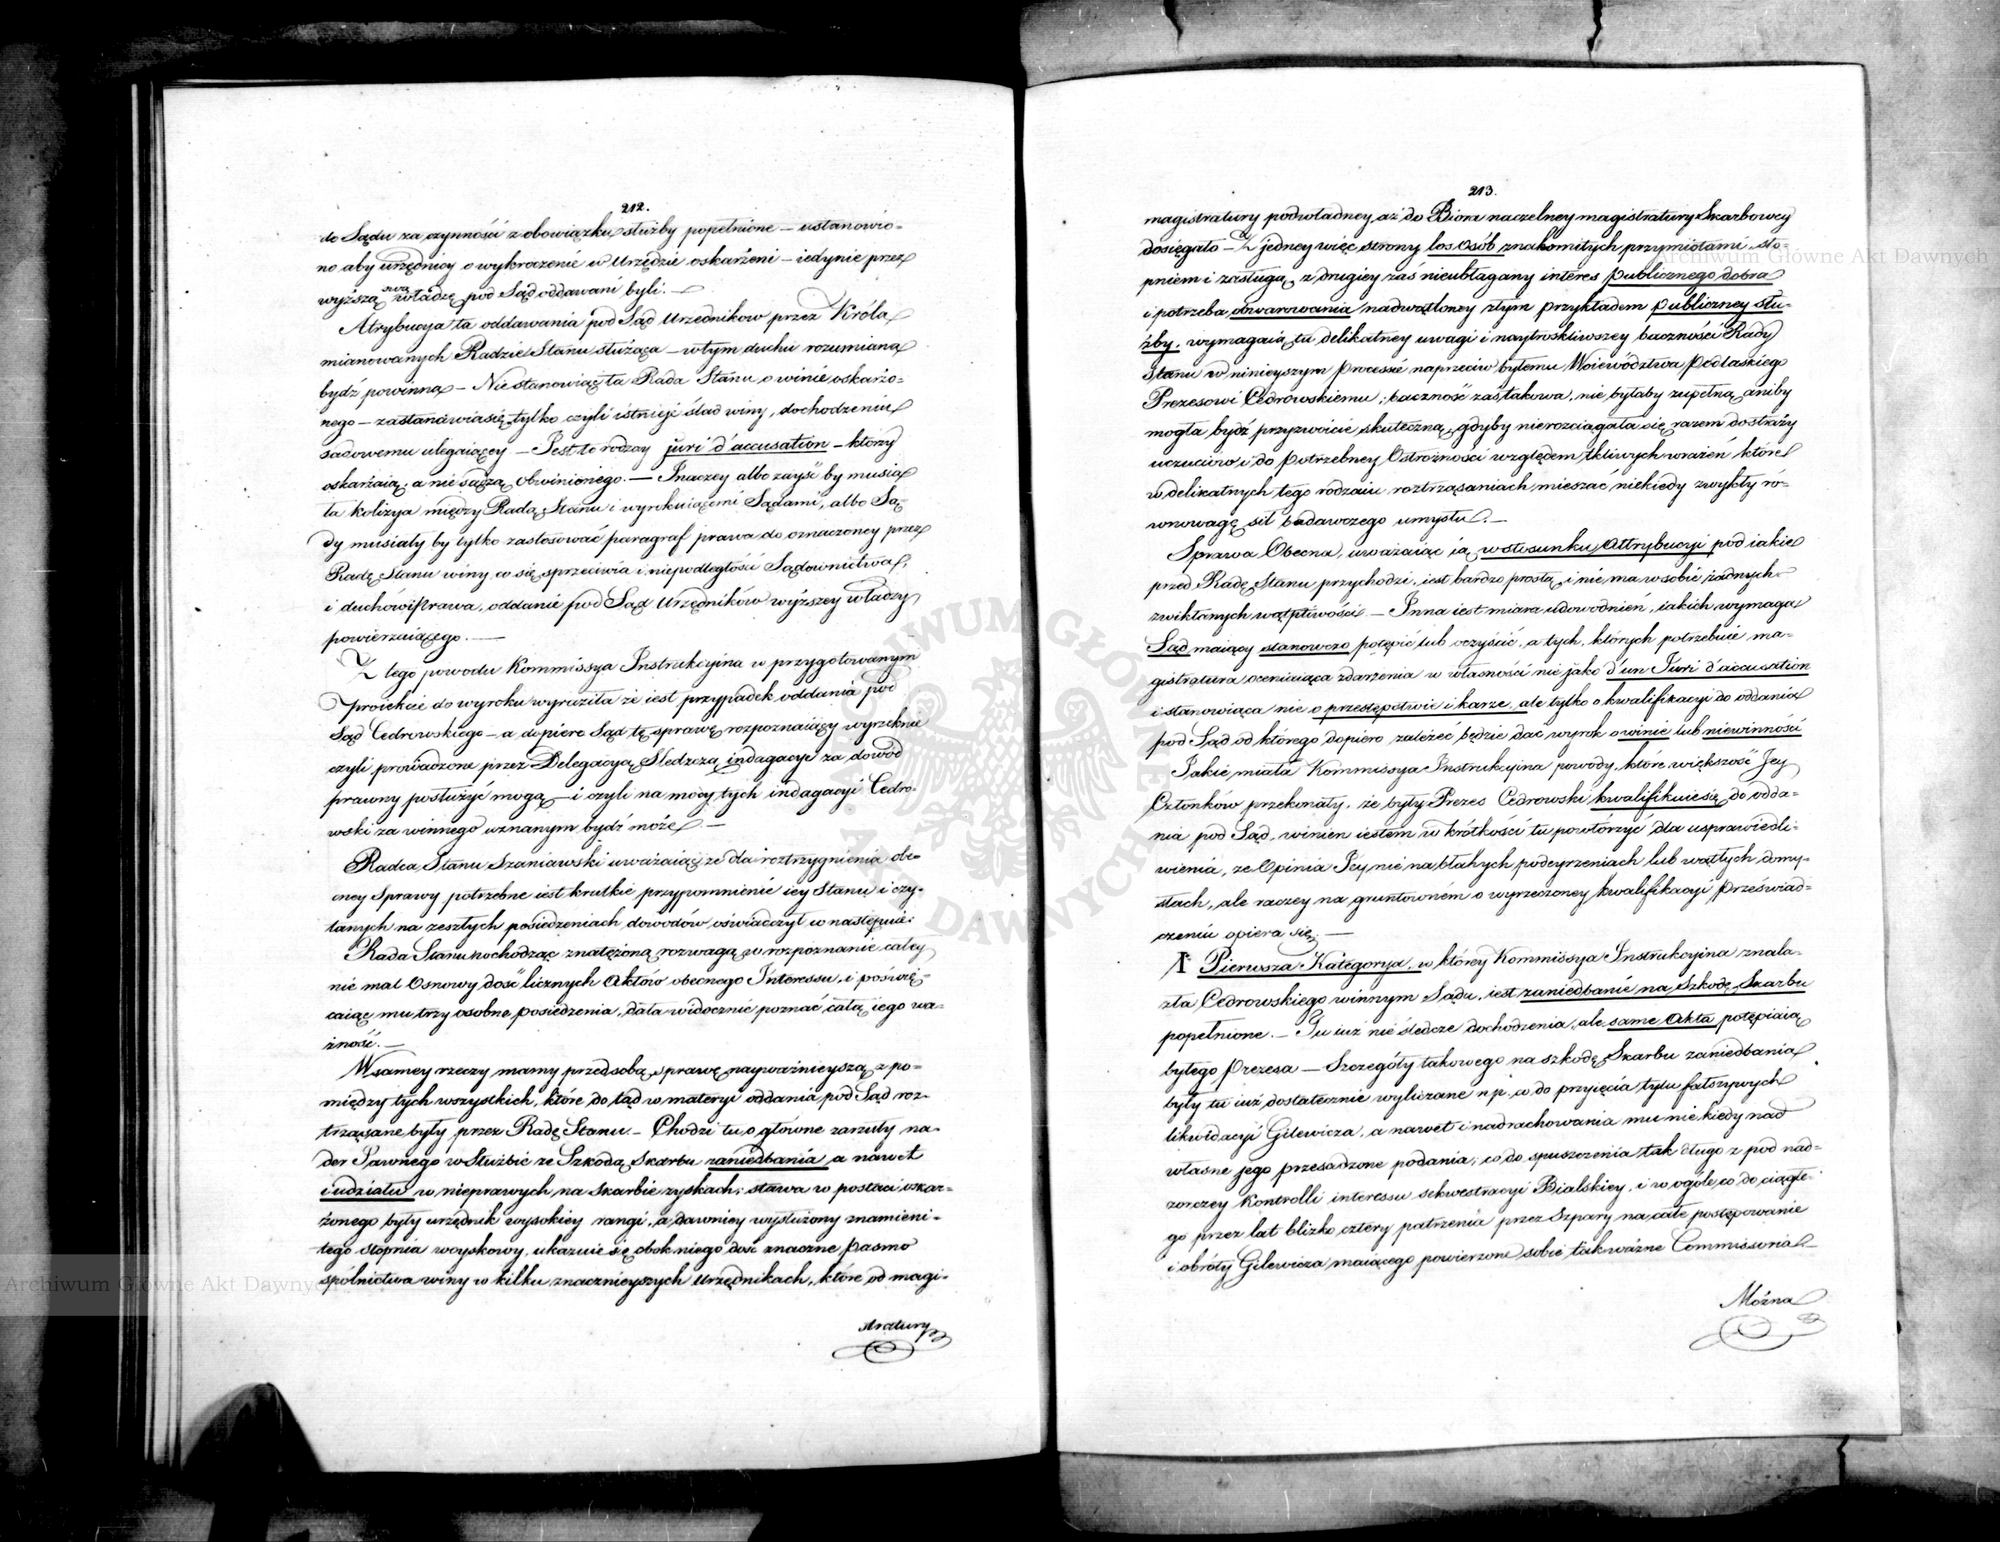 212.
do Sądu za czynności z obowiązku służby popełnione – ustanowio-
no aby urzędnicy o wykroczenie w Urzędzie oskarżeni – iedynie przez
wyższą swą władzę pod Sąd oddawani byli. –
Atrybucya ta oddawania pod Sąd Urzędników przez Króla
mianowanych Radzie Stanu służąca – w tym duchu rozumianą
bydź powinna – Nie stanowiąc ta Rada Stanu o winie oskarżo-
nego – zastanawia się tylko czyli istnieje ślad winy, dochodzeniu
sądowemu ulegaiącey – Jest to rodzay juri d'accusation – którzy
oskarżaią, a nie sądzą obwinionego. – Inaczey albo zayść by musiała
ta kolizya między Radą Stanu i wyrokuiącemi Sądami, albo Są-
dy musiały by tylko zastosować paragraf prawa do oznaczoney przez
Radę Stanu winy, co się sprzeciwia i niepodległości Sądownictwa,
i duchowi Prawa, oddanie pod Sąd Urzędników wyższey władzy
powierzaiącego. –
Z tego powodu Kommissya Instrukcyina w przygotowanym
proiekcie do wyroku wyraziła że iest przypadek oddania pod
Sąd Cedrowskiego – a dopiero Sąd tę sprawę rozpoznaiący wyrzeknie
czyli prowadzone przez Delegacyą Śledczą indagacye za dowód
prawny posłużyć mogą – i czyli na mocy tych indagacyi Cedro-
wski za winnego uznanym bydź może –
Radca Stanu Szaniawski uważaiąc że dla roztrzygnienia obe-
cney Sprawy potrzebne iest krutkie przypomnienie iey Stanu i czy-
tanych na zeszłych posiedzeniach dowodów oświadczył co następuie:
Rada Stanu wchodząc z natężoną rozwagą w rozpoznanie całey
nie mal Osnowy dość licznych Aktów obecnego Interessu, i poświę-
caiąc mu trzy osobne posiedzenia, dała widocznie poznać całą iego wa-
żność. –
W samey rzeczy mamy przed sobą sprawę nayważnieyszą z po-
między tych wszystkich, które do tąd w materyi oddania pod Sąd roz-
trząsane były przez Radę Stanu – Chodzi tu o główne zarzuty na-
der Jawnego w Służbie ze Szkodą Skarbu zaniedbania, a nawet
i udziału w nieprawych na Skarbie zyskach; stawa w postaci oskar-
żonego były urzędnik wysokiey rangi, a dawniey wysłużony znamieni-
tego stopnia woyskowy, ukazuie się obok niego dość znaczne pasmo
spólnictwa winy w kilku znacznieyszych Urzędnikach, które od magi-
stratury
213.
magistratury podwładney aż do Biora naczelney magistratury Skarbowey
dosięgało – Z jedney więc strony los Osób znakomitych przymiotami sto-
pniem i zasługą, z drugiey zaś nieubłagany interes publicznego dobra
i potrzeba obwarowania nadwątloney złym przykładem publiczney słu-
żby, wymagaią tu delikatney uwagi i naytroskliwszey baczności Rady
Stanu w ninieyszym Processie naprzeciw byłemu Woiewództwa Podlaskiego
Prezesowi Cedrowskiemu; baczność zaś takowa, nie byłaby zupełną, aniby
mogła bydź przyzwoicie skuteczną, gdyby nierozciągała się razem do straży
uczuciów i do potrzebney Ostrożności względem tkliwych wrażeń które
w delikatnych tego rodzaiu roztrząsaniach mieszać niekiedy zwykły ró-
wnowagę sił badawczego umysłu. –
Sprawa Obecna, uważaiąc ią w stosunku Attrybucyi pod iakie
przed Radę Stanu przychodzi, iest bardzo prostą i nie ma w sobie żadnych
zwikłanych wątpliwości – Inna iest miara udowodnień, iakich wymaga
Sąd maiący stanowczo potępić lub oczyścić, a tych, których potrzebuie ma-
gistratura oceniaiąca zdarzenia w własności nie jako d'un Juri d'accusation
i stanowiąca nie o przestępstwie i karze, ale tylko o kwalifikacyi do oddania
pod Sąd od którego dopiero zależeć będzie dać wyrok o winie lub niewinności
Jakie miała Kommissya Instrukcyina powody, które większość Jey
Członków przekonały, że były Prezes Cedrowski kwalifikuie się do odda-
nia pod Sąd, winien iestem w krótkości tu powtórzyć dla usprawiedli-
wienia, że Opinia Jey nie na błahych podeyrzeniach lub wątłych domy-
słach, ale raczey na gruntowném o wyrzeczoney kwalifikacyi przeświad-
czeniu opiera się. –
I Pierwsza Kategorya, w którey Kommissya Instrukcyina znala-
zła Cedrowskiego winnym Sądu, iest zaniedbanie na Szkodę Skarbu
popełnione. – Tu iuż nie śledcze dochodzenia, ale same Akta potępiaią
byłego Prezesa – Szczegóły takowego na szkodę Skarbu zaniedbania
były tu iuż dostatecznie wyliczane np. co do przyięcia tylu fałszywych
likwidacyi Gilewicza, a nawet i nadrachowania mu niekiedy nad
własne jego przesadzone podania; co do spuszczenia tak długo z pod nad-
zorczey Kontrolli interessu sekwestracyi Bialskiey, i w ogóle co do ciągłe-
go przez lat blizko cztéry patrzenia przez Szpary na całe postępowanie
i obróty Gilewicza maiącego powierzone sobie tak ważne Commissoria –
Można